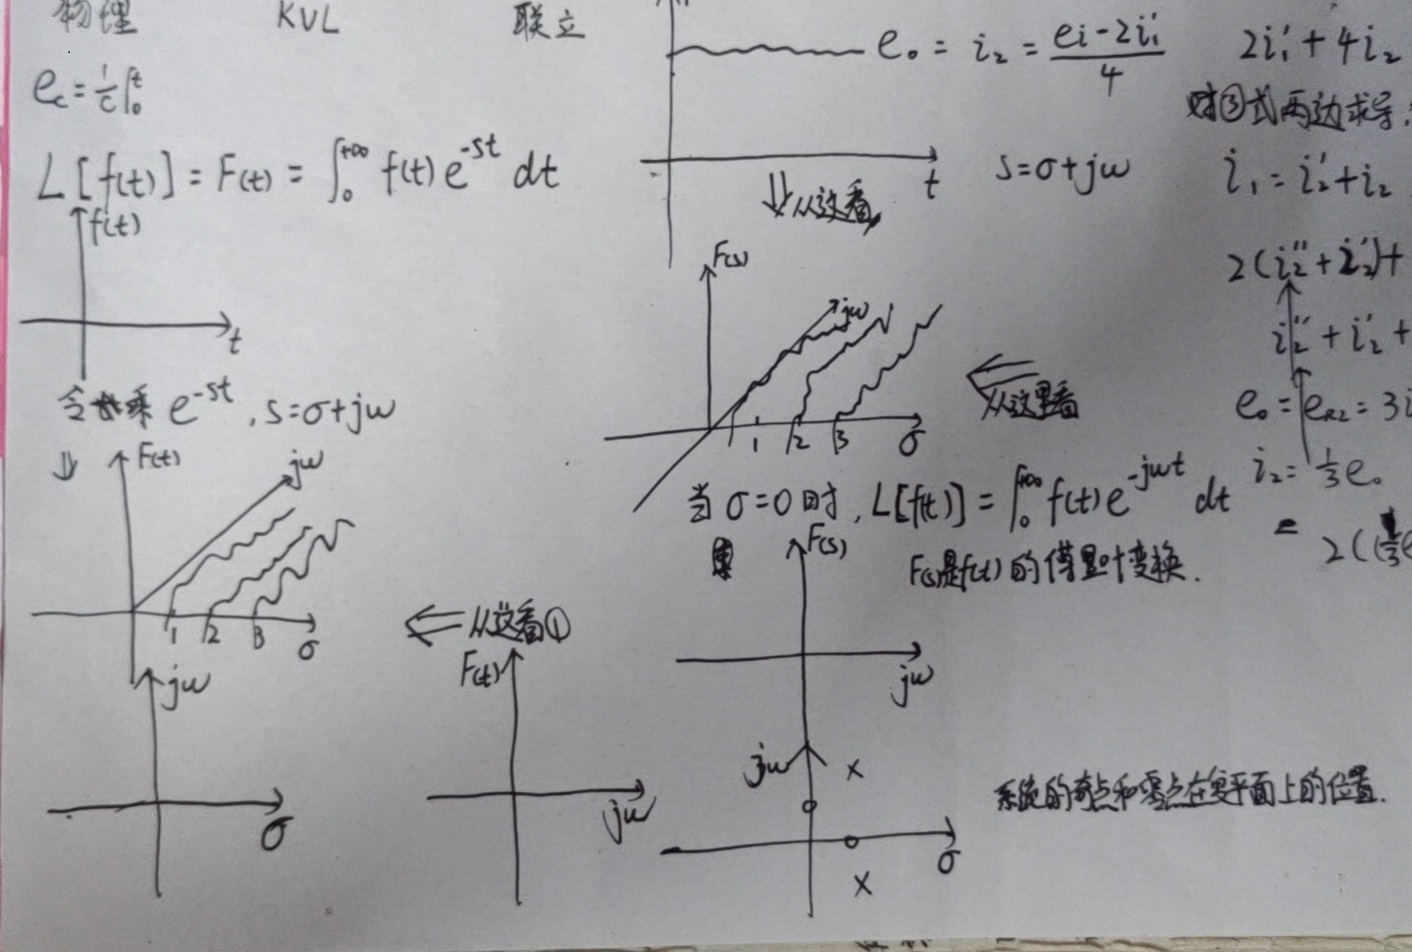 物理 KVL 联立
e_c = 1/C ∫₀ᵗ
L[f(t)] = F(t) = ∫₀^{+∞} f(t) e^{-st} dt
f(t)
t
令 乘 e^{-st}, s=σ+jω
⇓ F(t)
jω
1 2 3 σ
⇐ 从这看①
jω
σ
F(t)
jω
e₀ = i₂ = (ei-2i₁')/4
t
s=σ+jω
⇓从这看
F(s)
jω
1 2 3 σ
⇐ 从这里看
当 σ=0 时, L[f(t)] = ∫₀^{+∞} f(t) e^{-jωt} dt
F(s)是f(t)的傅里叶变换.
F(s)
jω
jω
x
x
σ
系统的奇点和零点在复平面上的位置.
2i₁' + 4i₂
对③式两边求导,
i₁ = i₂' + i₂
2(i₂''+i₂')+
i₂'' + i₂' +
e₀ = e_{R2} = 3i
i₂ = ⅓e₀
= 2((⅓e